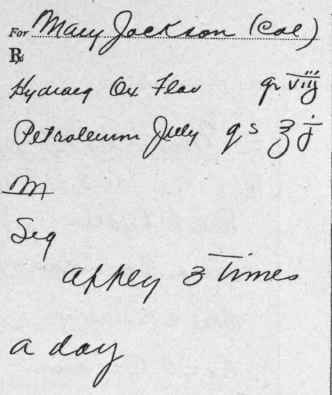 For Mary Jackson (Col)
℞
Hydrarg Ox Flav gr viij
Petroleum Jelly qs ℥ j
M
Sig
apply 3 times
a day